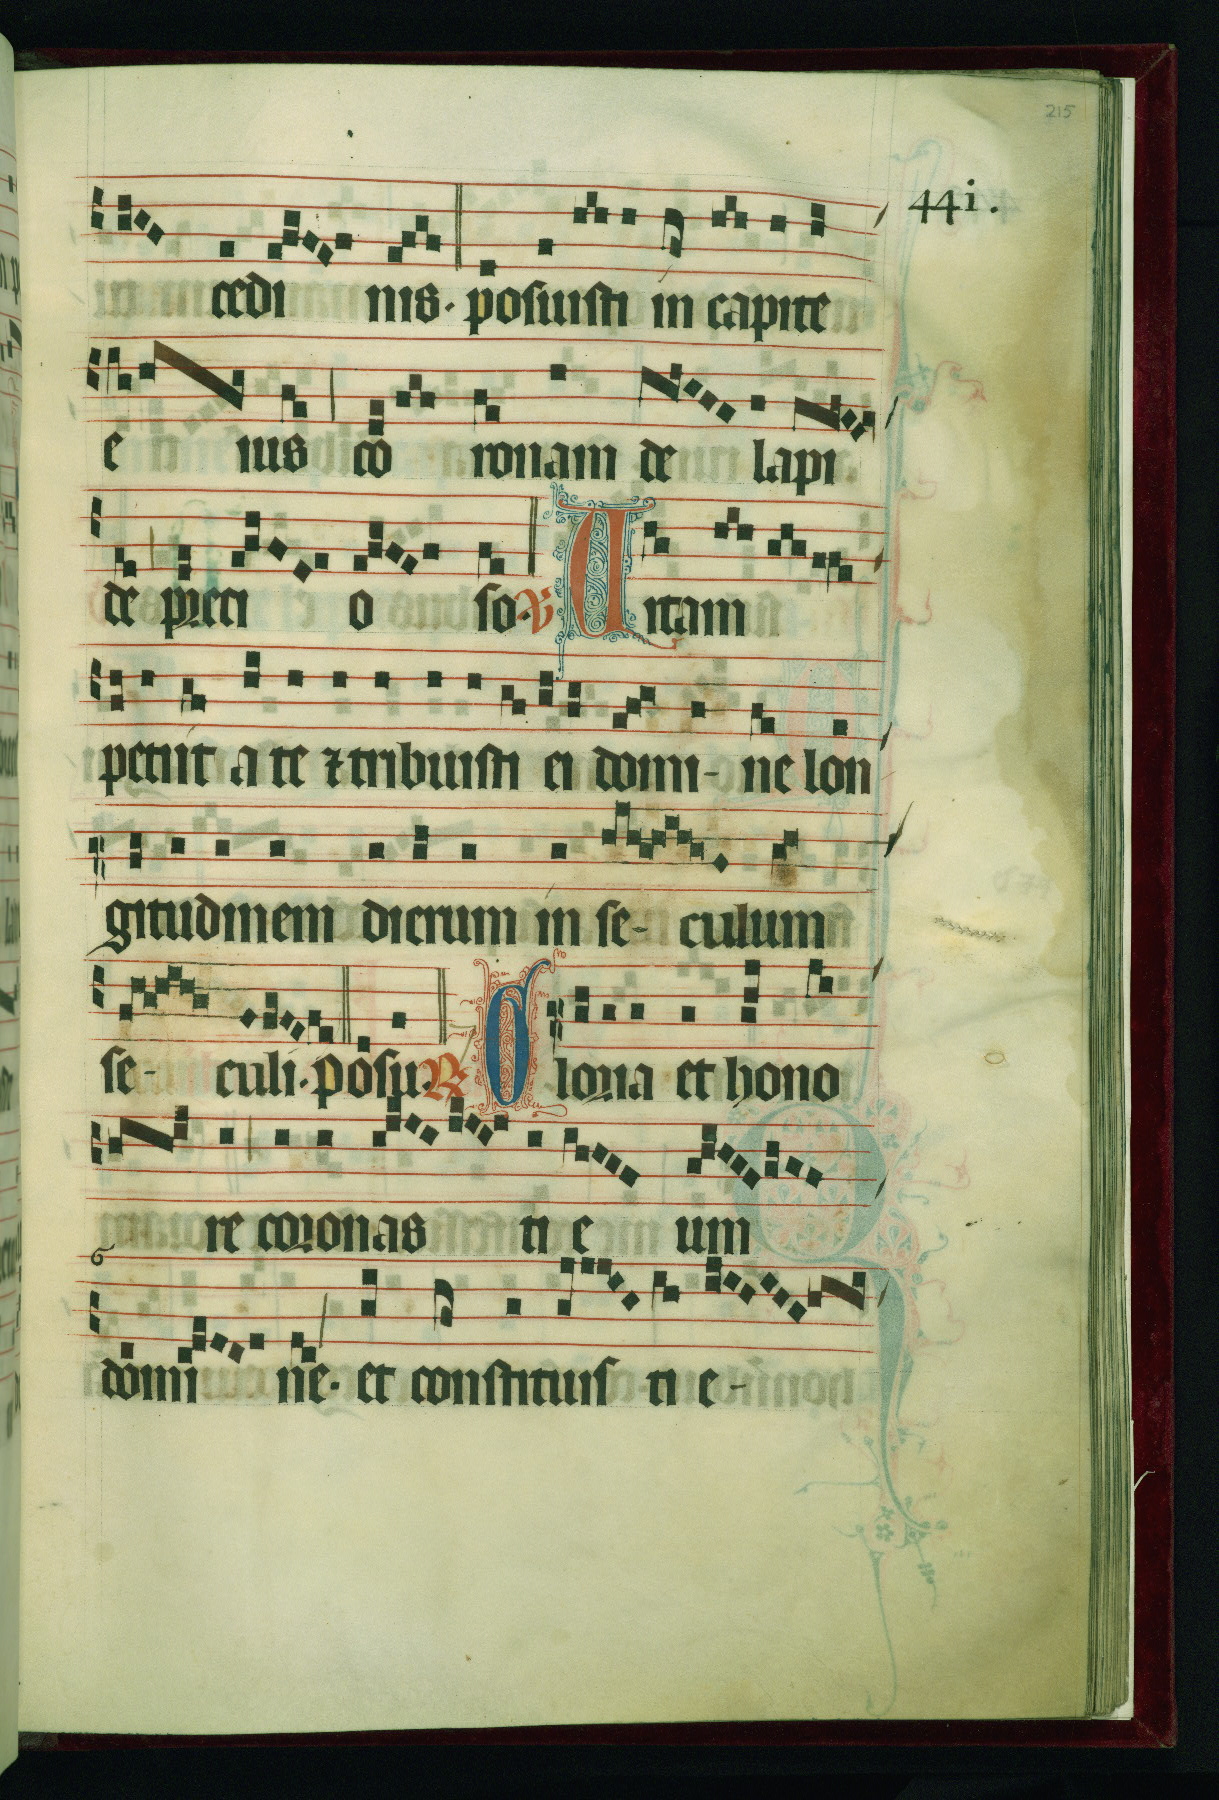 215
44i.
cedi nis. posuisti in capite
e ius co ronam de lapi
de preti o so. ℣ Vitam
petiit a te ⁊ tribuisti ei domi- ne lon
gitudinem dierum in se- culum
se- culi. posu. ℟ Gloria et hono
re coronas ti e um
domi ne. et constituis ti e-